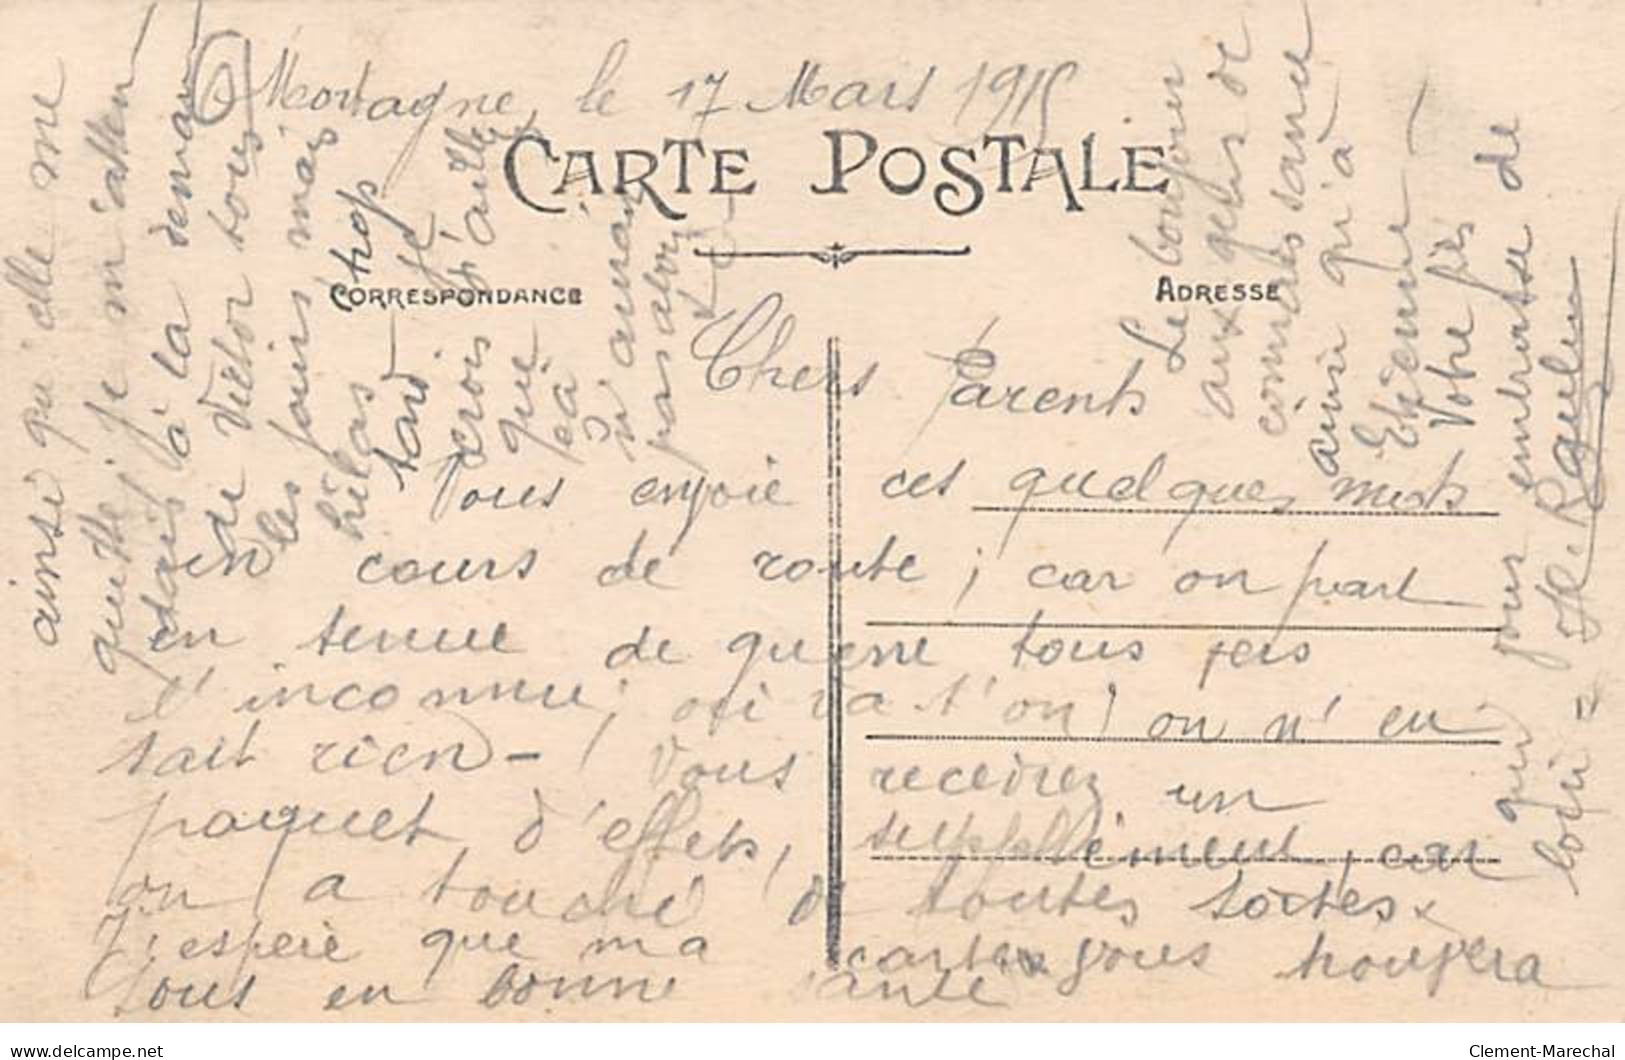 Mortagne, le 17 Mars 1915
CARTE POSTALE
CORRESPONDANCE
ADRESSE
Chers Parents
Vous envoie ces quelques mots
en cours de route ; car on part
en tenue de guerre tous vers
l'inconnu ; où va t'on ! on n'en
sait rien - Vous recevrez un
paquet d'effets, car
on a touché de toutes sortes
J'espère que ma carte vous trouvera
tous en bonne santé
ainsi qu'elle me
quitte ; je m'atten
dais à la deman
de Victor tous
les jours mais
hélas trop
tard je
crois d'aille
que
n'aurai
pas
Le bonjour
aux gens de
connaissance
ainsi qu'à
Etienne
Votre fils
qui vous embrasse de
loin =
Clement-Marechal
delcampe.net